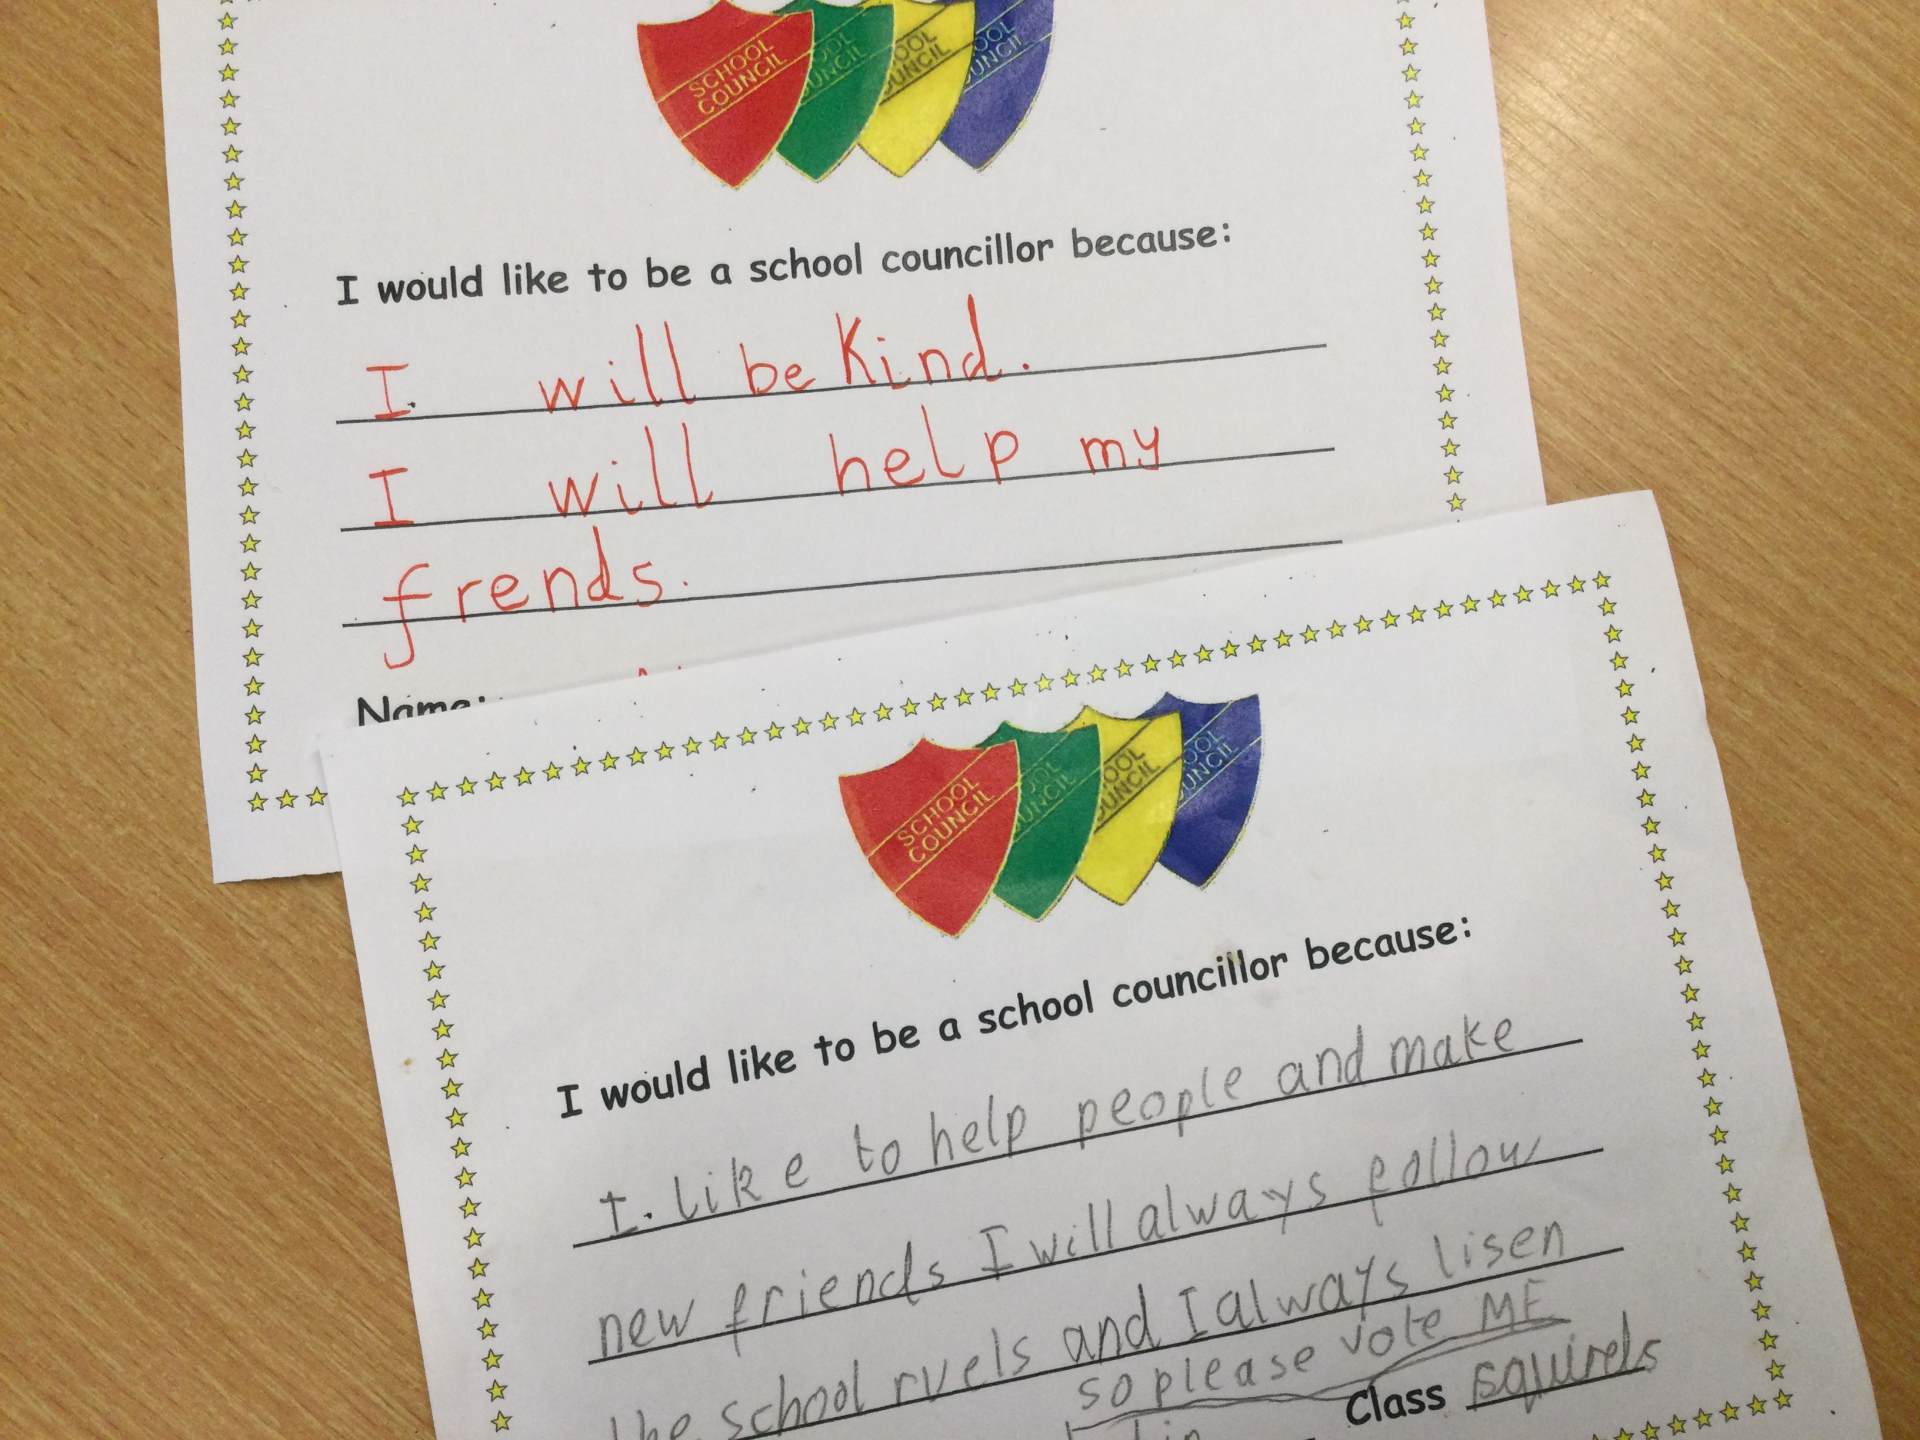 SCHOOL COUNCIL
OOL UNCIL
OOL UNCIL
OOL UNCIL
I would like to be a school councillor because:
I. will be Kind.
I will help my
frends.
Name:
SCHOOL COUNCIL
OOL UNCIL
OOL OUNCIL
OOL UNCIL
I would like to be a school councillor because:
I. like to help people and make
new friends I will always follow
the school ruels and I always lisen
so please vote ME
Class squirels